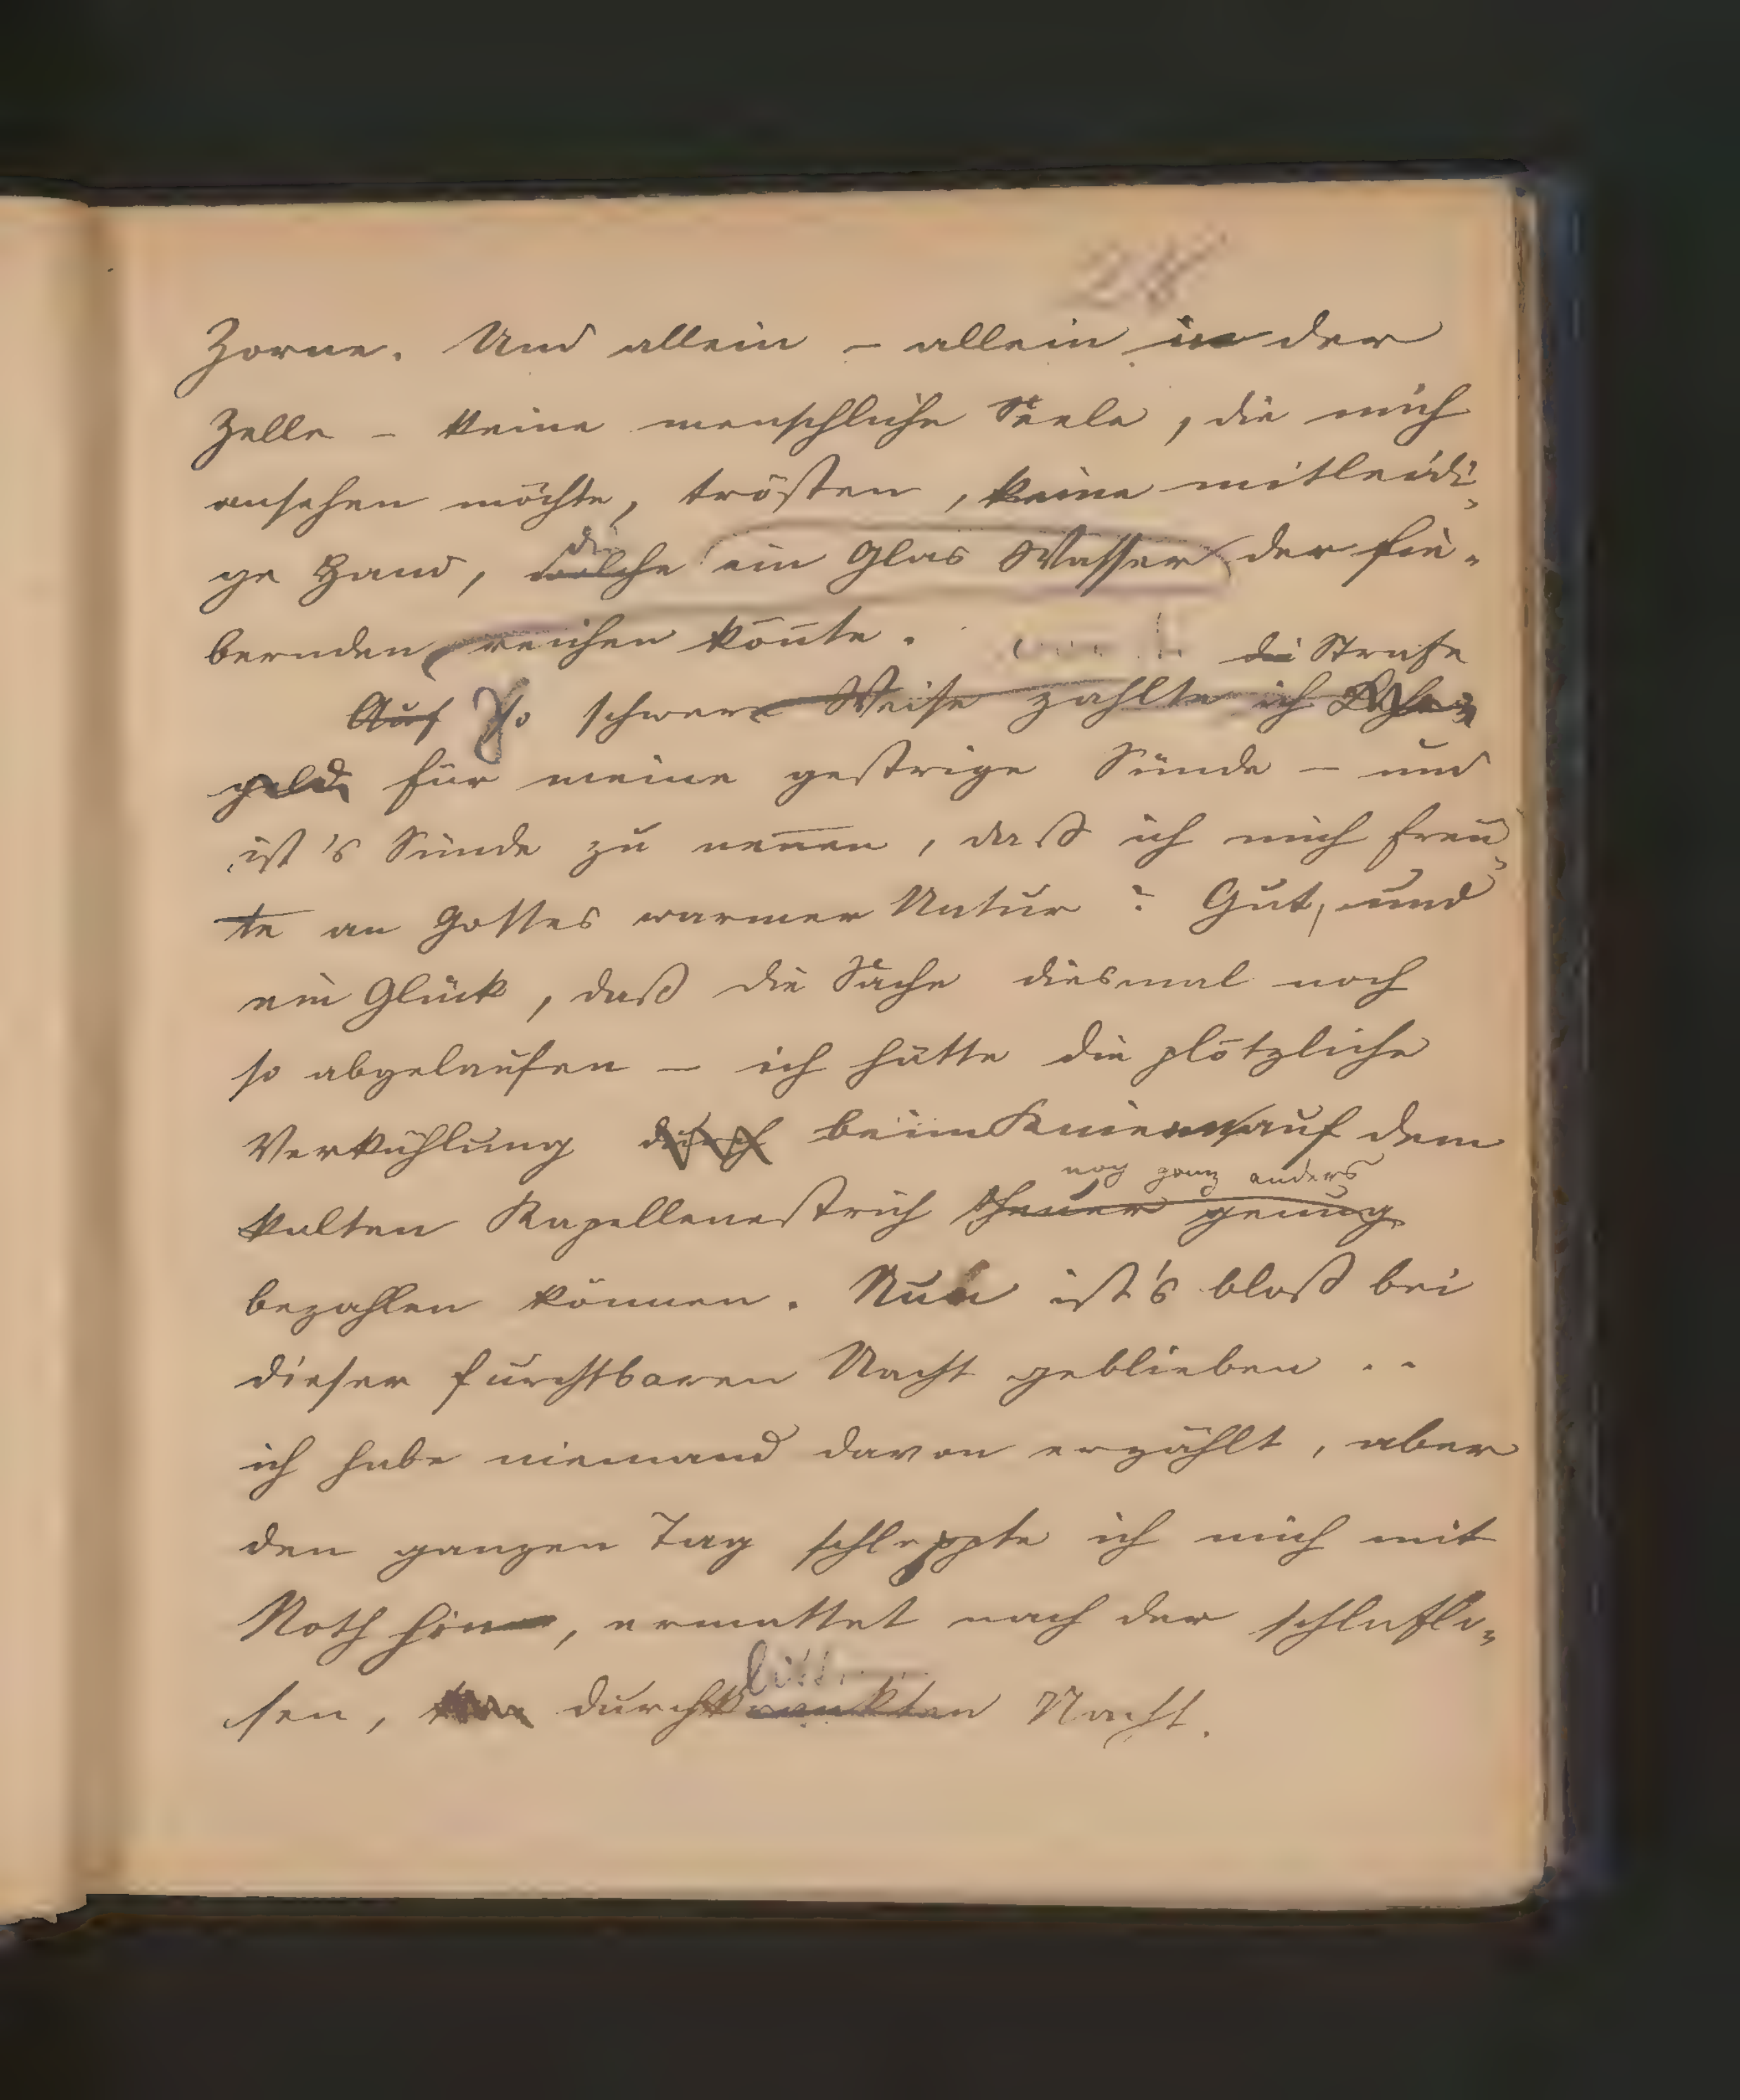 28
Zorne. Und allein – allein in der
Zelle – keine menschliche Seele, die mich
ansehen möchte, trösten, keine mitleidi-
die
ge Hand, welche ein Glas Wasser der fie-
bernden reichen könnte.
die Strafe
Auf So schwere Weise zahlte ich
geld für meine gestrige Sünde – und
ist's Sünde zu nennen, daß ich mich freu-
te an Gottes warmer Natur? Gut, und
ein Glück, daß die Sache diesmal noch
so abgelaufen – ich hätte die plötzliche
Verkühlung durch beim Knieen auf dem
noch ganz anders
kalten Kapellenestrich theuer genug
bezahlen können. Nun ist's bloß bei
dieser furchtbaren Nacht geblieben ..
ich habe niemand davon erzählt, aber
den ganzen Tag schleppte ich mich mit
Noth hin, ermattet nach der schlaflo-
litt
sen, durchkrankten Nacht.